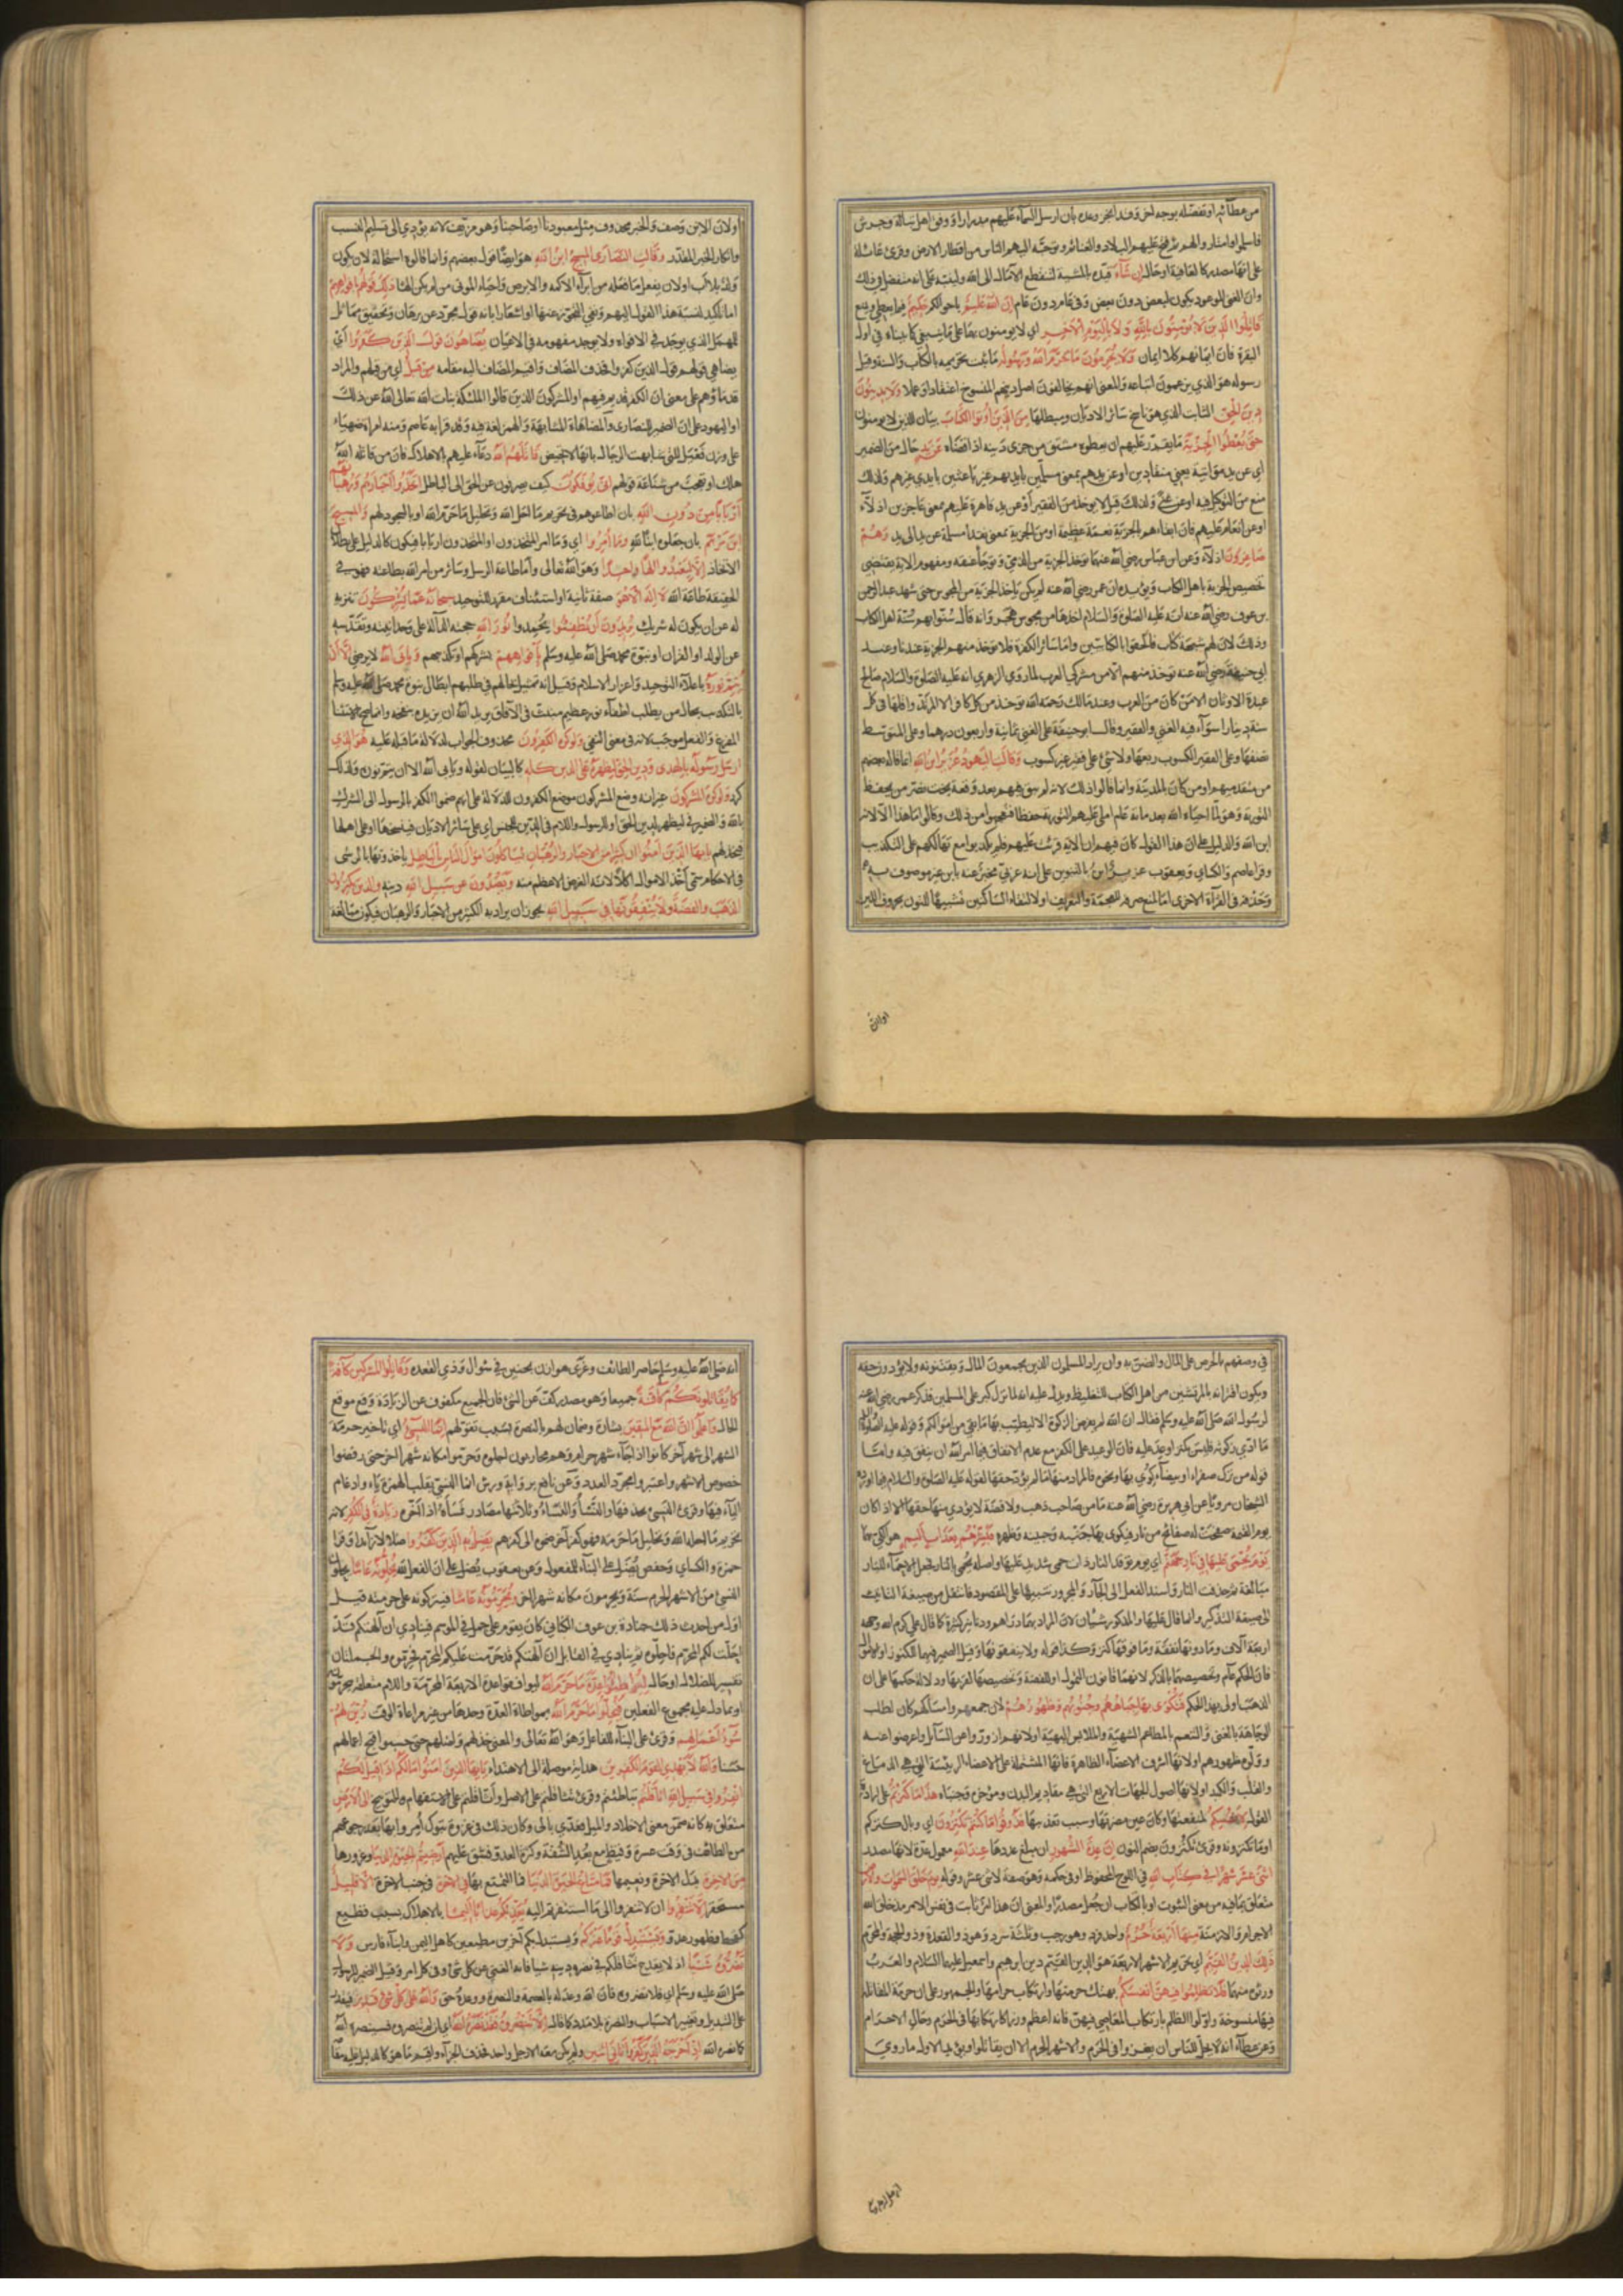 من عطائه او تفضله بوجه اخر وقد انجز وعده بان ارسل السماء عليهم مدرارا ووفق اهل تبالة وجرش
فاسلموا وامتاروا لهم ثم فتح عليهم البلاد والغنائم وتوجه اليهم الناس من اقطار الارض وقرئ عائلة
على انها مصدر كالعافية او حال ان شاء قيده بالمشية لتنقطع الآمال الى الله ولينبه على انه متفضل في ذلك
وان الغنى الموعود يكون لبعض دون بعض وفي عام دون عام ان الله عليم باحوالكم حكيم فيما يعطي ويمنع
قاتلوا الذين لا يؤمنون بالله ولا باليوم الاخر اي لا يؤمنون بهما على ما ينبغي كما بيناه في اول
البقرة فان ايمانهم كلا ايمان ولا يحرمون ما حرم الله ورسوله ما ثبت تحريمه بالكتاب والسنة وقيل
رسوله هو الذي يزعمون اتباعه والمعنى انهم يخالفون اصل دينهم المنسوخ اعتقادا وعملا ولا يدينون
دين الحق الثابت الذي هو ناسخ سائر الاديان ومبطلها من الذين اوتوا الكتاب بيان للذين لا يؤمنون
حتى يعطوا الجزية ما يقرر عليهم ان يعطوه مشتق من جزى دينه اذا قضاه عن يد حال من الضمير
اي عن يد مؤاتية يعني منقادين او عن يدهم بمعنى مسلمين بايديهم غير باعثين بايدي غيرهم ولذلك
منع من التوكيل فيه او عن غنى ولذلك قيل لا يؤخذ من الفقير او عن يد قاهرة عليهم بمعنى عاجزين اذلاء
او عن انعام عليهم فان ابقاءهم بالجزية نعمة عظيمة او من الجزية بمعنى نقدا مسلمة عن يد الى يد وهم
صاغرون اذلاء وعن ابن عباس رضي الله عنهما تؤخذ الجزية من الذمي وتوجأ عنقه ومفهوم الاية يقتضي
تخصيص الجزية باهل الكتاب ويؤيده ان عمر رضي الله عنه لم يكن ياخذ الجزية من المجوس حتى شهد عبد الرحمن
بن عوف رضي الله عنه انه عليه الصلوة والسلام اخذها من مجوس هجر وانه قال سنوا بهم سنة اهل الكتاب
وذلك لان لهم شبهة كتاب فالحقوا بالكتابيين واما سائر الكفرة فلا تؤخذ منهم الجزية عندنا وعند
ابي حنيفة رضي الله عنه تؤخذ منهم الا من مشركي العرب لما روى الزهري انه عليه الصلوة والسلام صالح
عبدة الاوثان الا من كان من العرب وعند مالك رحمه الله تؤخذ من كل كافر الا المرتد واقلها في كل
سنة دينار سواء فيه الغني والفقير وقال ابو حنيفة على الغني ثمانية واربعون درهما وعلى المتوسط
نصفها وعلى الفقير الكسوب ربعها ولا شئ على فقير غير كسوب وقالت اليهود عزير ابن الله انما قاله بعضهم
من متقدميهم او ممن كان بالمدينة وانما قالوا ذلك لانه لم يبق فيهم بعد وقعة بخت نصر من يحفظ
التورية وهو لما احياه الله بعد مائة عام املى عليهم التورية حفظا فتعجبوا من ذلك وقالوا ما هذا الا لانه
ابن الله والدليل على ان هذا القول كان فيهم ان الاية قرئت عليهم فلم يكذبوا مع تهالكهم على التكذيب
وقرا عاصم والكسائي ويعقوب عزير ابن بالتنوين على انه عربي مخبر عنه بابن غير موصوف به
وحذفه في القراءة الاخرى اما لمنع صرفه للعجمة والتعريف او لالتقاء الساكنين تشبيها للنون بحروف اللين
اولان
اولان الابن وصف والخبر محذوف مثل معبودنا او صاحبنا وهو مزيف لانه يؤدي الى تسليم النسب
وانكار الخبر المقدر وقالت النصارى المسيح ابن الله هو ايضا قول بعضهم وانما قالوه استحالة لان يكون
ولد بلا اب او لان يفعل ما فعله من ابراء الاكمه والابرص واحياء الموتى من لم يكن الها ذلك قولهم بافواههم
اما تاكيد لنسبة هذا القول اليهم ونفي للتجوز عنها او اشعار بانه قول مجرد عن برهان وتحقيق مماثل
للمهمل الذي يوجد في الافواه ولا يوجد مفهومه في الاعيان يضاهون قول الذين كفروا اي
يضاهي قولهم قول الذين كفروا فحذف المضاف واقيم المضاف اليه مقامه من قبل اي من قبلهم والمراد
قدماؤهم على معنى ان الكفر قديم فيهم او المشركون الذين قالوا الملئكة بنات الله تعالى الله عن ذلك
او اليهود على ان الضمير للنصارى والمضاهاة المشابهة والهمز لغة فيه وقد قرا به عاصم ومنه امراة ضهياء
على وزن فعيل للتي شابهت الرجال بانها لا تحيض قاتلهم الله دعاء عليهم بالاهلاك فان من قاتله الله
هلك او تعجب من شناعة قولهم انى يؤفكون كيف يصرفون عن الحق الى الباطل اتخذوا احبارهم ورهبانهم
اربابا من دون الله بان اطاعوهم في تحريم ما احل الله وتحليل ما حرم الله او بالسجود لهم والمسيح
ابن مريم بان جعلوه ابنا لله وما امروا اي وما امر المتخذون او المتخذون اربابا فيكون كالدليل على بطلان
الاتخاذ الا ليعبدوا الها واحدا وهو الله تعالى واما طاعة الرسل وسائر من امر الله بطاعته فهو في
الحقيقة طاعة الله لا اله الا هو صفة ثانية او استئناف مقرر للتوحيد سبحانه عما يشركون تنزيه
له عن ان يكون له شريك يريدون ان يطفئوا يخمدوا نور الله حجته الدالة على وحدانيته وتقدسه
عن الولد او القران او نبوة محمد صلى الله عليه وسلم بافواههم بشركهم او بتكذيبهم ويابى الله لا يرضى الا ان
يتم نوره باعلاء التوحيد واعزاز الاسلام وقيل انه تمثيل لحالهم في طلبهم ابطال نبوة محمد صلى الله عليه وسلم
بالتكذيب بحال من يطلب اطفاء نور عظيم منبث في الآفاق يريد الله ان يزيده بنفخه وانما صح الاستثناء
المفرغ والفعل موجب لانه في معنى النفي ولو كره الكفرون محذوف الجواب لدلالة ما قبله عليه هو الذي
ارسل رسوله بالهدى ودين الحق ليظهره على الدين كله كالبيان لقوله ويابى الله الا ان يتم نوره ولذلك
كرر ولو كره المشركون غير انه وضع المشركون موضع الكفرون للدلالة على انهم ضموا الكفر بالرسول الى الشرك
بالله والضمير في ليظهره لدين الحق او للرسول واللام في الدين للجنس اي على سائر الاديان فينسخها او على اهلها
فيخذلهم يايها الذين امنوا ان كثيرا من الاحبار والرهبان لياكلون اموال الناس بالباطل ياخذونها بالرشى
في الاحكام سمى اخذ الاموال اكلا لانه الغرض الاعظم منه ويصدون عن سبيل الله دينه والذين يكنزون
الذهب والفضة ولا ينفقونها في سبيل الله يجوز ان يراد به الكثير من الاحبار والرهبان فيكون مبالغة
في وصفهم بالحرص على المال والضن به وان يراد المسلمون الذين يجمعون المال ويقتنونه ولا يؤدون حقه
ويكون اقترانه بالمرتشين من اهل الكتاب للتغليظ ويدل عليه انه لما نزل كبر على المسلمين فذكر عمر رضي الله عنه
لرسول الله صلى الله عليه وسلم فقال ان الله لم يفرض الزكوة الا ليطيب بها ما بقي من اموالكم وقوله عليه الصلوة والسلام
ما ادي زكوته فليس بكنز اي اوعد عليه فان الوعيد على الكنز مع عدم الانفاق فيما امر الله ان ينفق فيه واما
قوله من ترك صفراء او بيضاء كوي بها ونحوه فالمراد منها ما لم يؤد حقها لقوله عليه الصلوة والسلام فيما اورده
الشيخان مرويا عن ابي هريرة رضي الله عنه ما من صاحب ذهب ولا فضة لا يؤدي منها حقها الا اذا كان
يوم القيمة صفحت له صفائح من نار فيكوى بها جنبه وجبينه وظهره فبشرهم بعذاب اليم هو الكي بهما
يوم يحمى عليها في نار جهنم اي يوم توقد النار ذات حمي شديد عليها واصله تحمى بالنار فجعل الاحماء للنار
مبالغة ثم حذفت النار واسند الفعل الى الجار والمجرور تنبيها على المقصود فانتقل من صيغة التانيث
الى صيغة التذكير وانما قال عليها والمذكور شيئان لان المراد بهما دراهم ودنانير كثيرة كما قال علي كرم الله وجهه
اربعة آلاف وما دونها نفقة وما فوقها كنز وكذا قوله ولا ينفقونها وقيل الضمير فيهما للكنوز او للاموال
فان الحكم عام وتخصيصهما بالذكر لانهما قانون التمول او للفضة وتخصيصها لقربها ودلالة حكمها على ان
الذهب اولى بهذا الحكم فتكوى بها جباههم وجنوبهم وظهورهم لان جمعهم وامساكهم كان لطلب
الوجاهة بالغنى والتنعم بالمطاعم الشهية والملابس البهية او لانهم ازوروا عن السائل واعرضوا عنه
وولوه ظهورهم او لانها اشرف الاعضاء الظاهرة فانها المشتملة على الاعضاء الرئيسة التي هي الدماغ
والقلب والكبد او لانها اصول الجهات الاربع التي هي مقاديم البدن ومؤخره وجنباه هذا ما كنزتم على ارادة
القول لانفسكم لمنفعتها وكان عين مضرتها وسبب تعذيبها فذوقوا ما كنتم تكنزون اي وبال كنزكم
او ما تكنزونه وقرئ تكنزون بضم النون ان عدة الشهور ان مبلغ عددها عند الله معمول عدة لانها مصدر
اثنى عشر شهرا في كتاب الله في اللوح المحفوظ او في حكمه وهو صفة لاثنى عشر وقوله يوم خلق السموات والارض
متعلق بما فيه من معنى الثبوت او بالكتاب ان جعل مصدرا والمعنى ان هذا امر ثابت في نفس الامر مذ خلق الله
الاجرام والازمنة منها اربعة حرم واحد فرد وهو رجب وثلثة سرد وهو ذو القعدة وذو الحجة والمحرم
ذلك الدين القيم اي تحريم الاشهر الاربعة هو الدين القيم دين ابرهيم واسمعيل عليهما السلام والعرب
ورثوه منهما فلا تظلموا فيهن انفسكم بهتك حرمتها وارتكاب حرامها والجمهور على ان حرمة المقاتلة
فيها منسوخة واولوا الظلم بارتكاب المعاصي فيهن فانه اعظم وزرا كارتكابها في الحرم وحال الاحرام
وعن عطاء انه لا يحل للناس ان يغزوا في الحرم والاشهر الحرم الا ان يقاتلوا ويؤيد الاول ما روي
انه صلى الله عليه وسلم حاصر الطائف وغزى هوازن بحنين في شوال وذي القعدة وقاتلوا المشركين كافة
كما يقاتلونكم كافة جميعا وهو مصدر كف عن الشئ فان الجميع مكفوف عن الزيادة وقع موقع
الحال واعلموا ان الله مع المتقين بشارة وضمان لهم بالنصرة بسبب تقوٰهم انما النسئ اي تاخير حرمة
الشهر الى شهر آخر كانوا اذا جاء شهر حرام وهم محاربون احلوه وحرموا مكانه شهرا اخر حتى رفضوا
خصوص الاشهر واعتبروا مجرد العدد وعن نافع برواية ورش انما النسي بقلب الهمزة ياء وادغام
الياء فيها وقرئ النسي بحذفها والنسأ والنساء وثلاثتها مصادر نسأه اذا اخره زيادة في الكفر لانه
تحريم ما احله الله وتحليل ما حرمه فهو كفر آخر ضموه الى كفرهم يضل به الذين كفروا ضلالا زائدا وقرا
حمزة والكسائي وحفص يضل على البناء للمفعول وعن يعقوب يضل على ان الفعل لله يحلونه عاما يحلون
النسئ من الاشهر الحرم سنة ويحرمون مكانه شهرا اخر ويحرمونه عاما فيتركونه على حرمته قيل
اول من احدث ذلك جنادة بن عوف الكناني كان يقوم على جمل في الموسم فينادي ان آلهتكم قد
احلت لكم المحرم فاحلوه ثم ينادي في القابل ان آلهتكم قد حرمت عليكم المحرم فحرموه والجملتان
تفسير للضلال او حال ليواطئوا عدة ما حرم الله ليوافقوا عدة الاربعة المحرمة واللام متعلقة بيحرمونه
او بما دل عليه مجموع الفعلين فيحلوا ما حرم الله بمواطاة العدة وحدها من غير مراعاة الوقت زين لهم
سوء اعمالهم وقرئ على البناء للفاعل وهو الله تعالى والمعنى خذلهم واضلهم حتى حسبوا قبيح اعمالهم
حسنا والله لا يهدي القوم الكفرين هداية موصلة الى الاهتداء يايها الذين امنوا ما لكم اذا قيل لكم
انفروا في سبيل الله اثاقلتم تباطئتم وقرئ تثاقلتم على الاصل واثاقلتم على الاستفهام للتوبيخ الى الارض
متعلق به كانه ضمن معنى الاخلاد والميل فعدي بالى وكان ذلك في غزوة تبوك امروا بها بعد رجوعهم
من الطائف في وقت عسرة وقيظ مع بعد الشقة وكثرة العدو فشق عليهم ارضيتم بالحيوة الدنيا وغرورها
من الاخرة بدل الاخرة ونعيمها فما متاع الحيوة الدنيا فما التمتع بها في الاخرة في جنب الاخرة الا قليل
مستحقر الا تنفروا ان لا تنفروا الى ما استنفرتم اليه يعذبكم عذابا اليما بالاهلاك بسبب فظيع
كقحط وظهور عدو ويستبدل قوما غيركم ويستبدل بكم آخرين مطيعين كاهل اليمن وابناء فارس ولا
تضروه شيئا اذ لا يقدح تثاقلكم في نصره دينه شيا فانه الغني عن كل شئ وفي كل امر وقيل الضمير للرسول
صلى الله عليه وسلم اي فلا تضروه فان الله وعد له بالعصمة والنصرة ووعده حق والله على كل شئ قدير فيقدر
على التبديل وتغيير الاسباب والنصرة بلا مدد كما قال الا تنصروه فقد نصره الله اي ان لم تنصروه فسينصره الله
كما نصره الله اذ اخرجه الذين كفروا ثاني اثنين ولم يكن معه الا رجل واحد فحذف الجزاء واقيم ما هو كالدليل عليه مقامه